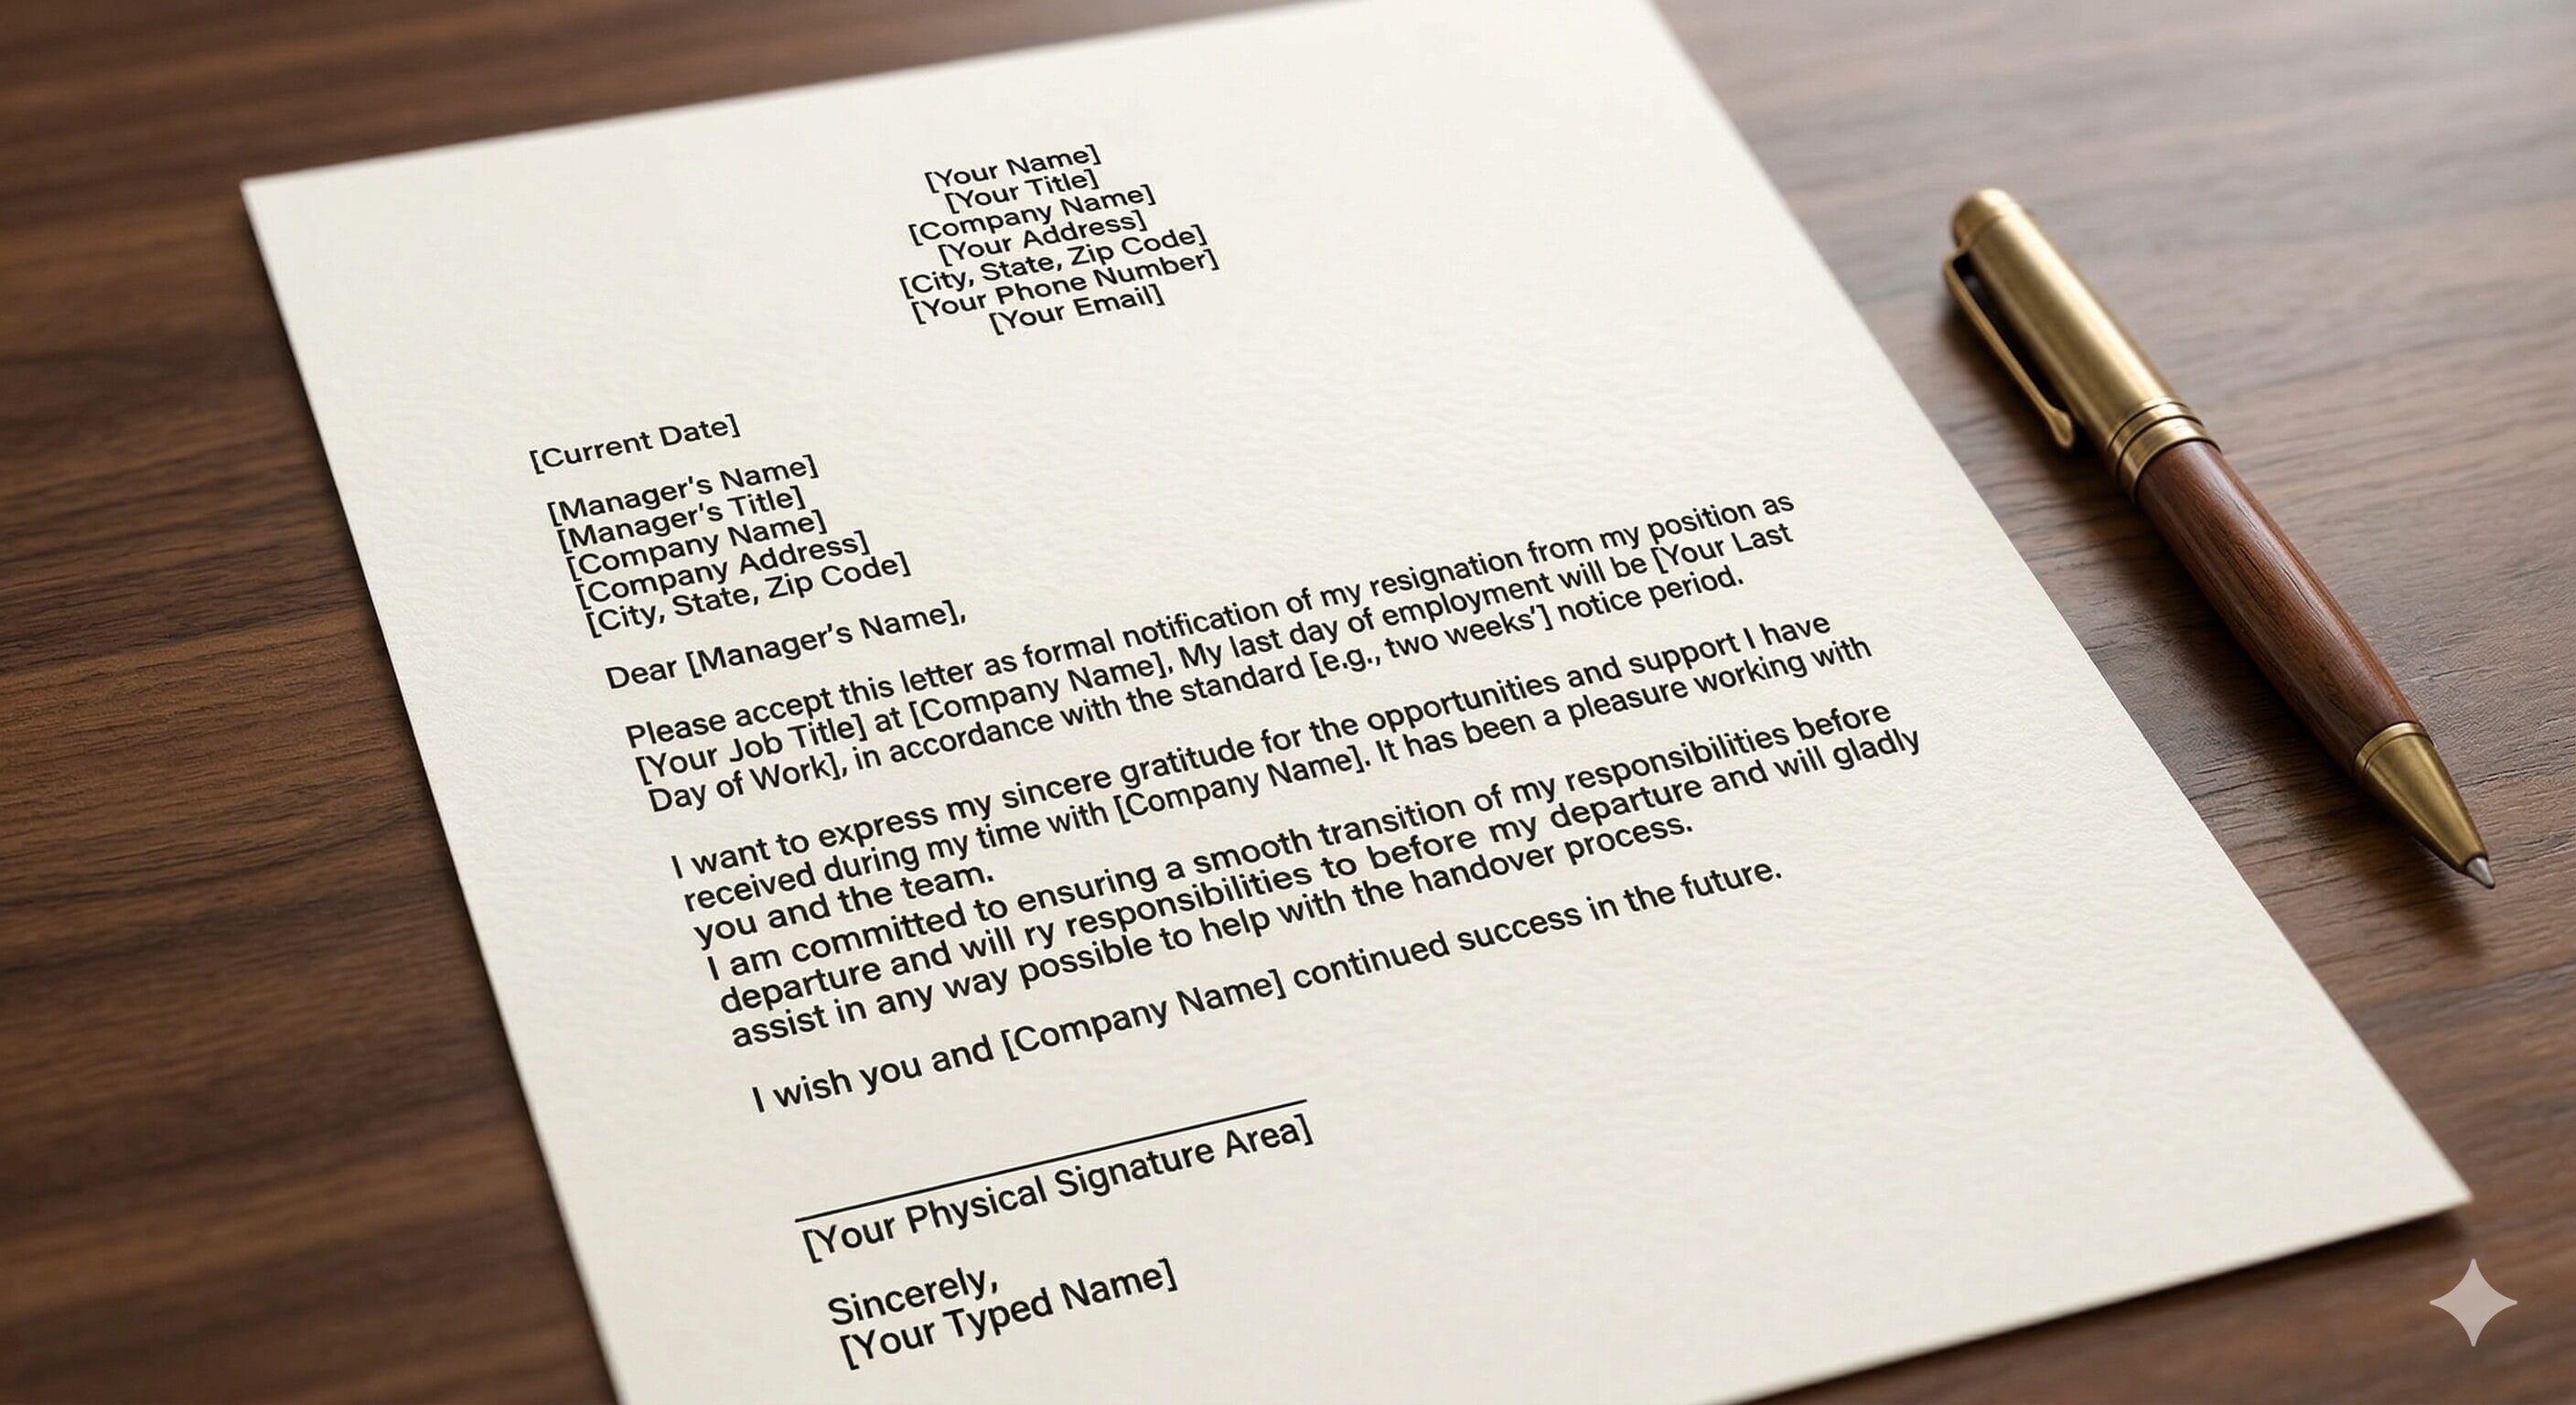 [Your Name]
[Your Title]
[Company Name]
[Your Address]
[City, State, Zip Code]
[Your Phone Number]
[Your Email]
[Current Date]
[Manager's Name]
[Manager's Title]
[Company Name]
[Company Address]
[City, State, Zip Code]
Dear [Manager's Name],
Please accept this letter as formal notification of my resignation from my position as
[Your Job Title] at [Company Name], My last day of employment will be [Your Last
Day of Work], in accordance with the standard [e.g., two weeks'] notice period.
I want to express my sincere gratitude for the opportunities and support I have
received during my time with [Company Name]. It has been a pleasure working with
you and the team.
I am committed to ensuring a smooth transition of my responsibilities before
departure and will ry responsibilities to before my departure and will gladly
assist in any way possible to help with the handover process.
I wish you and [Company Name] continued success in the future.
[Your Physical Signature Area]
Sincerely,
[Your Typed Name]